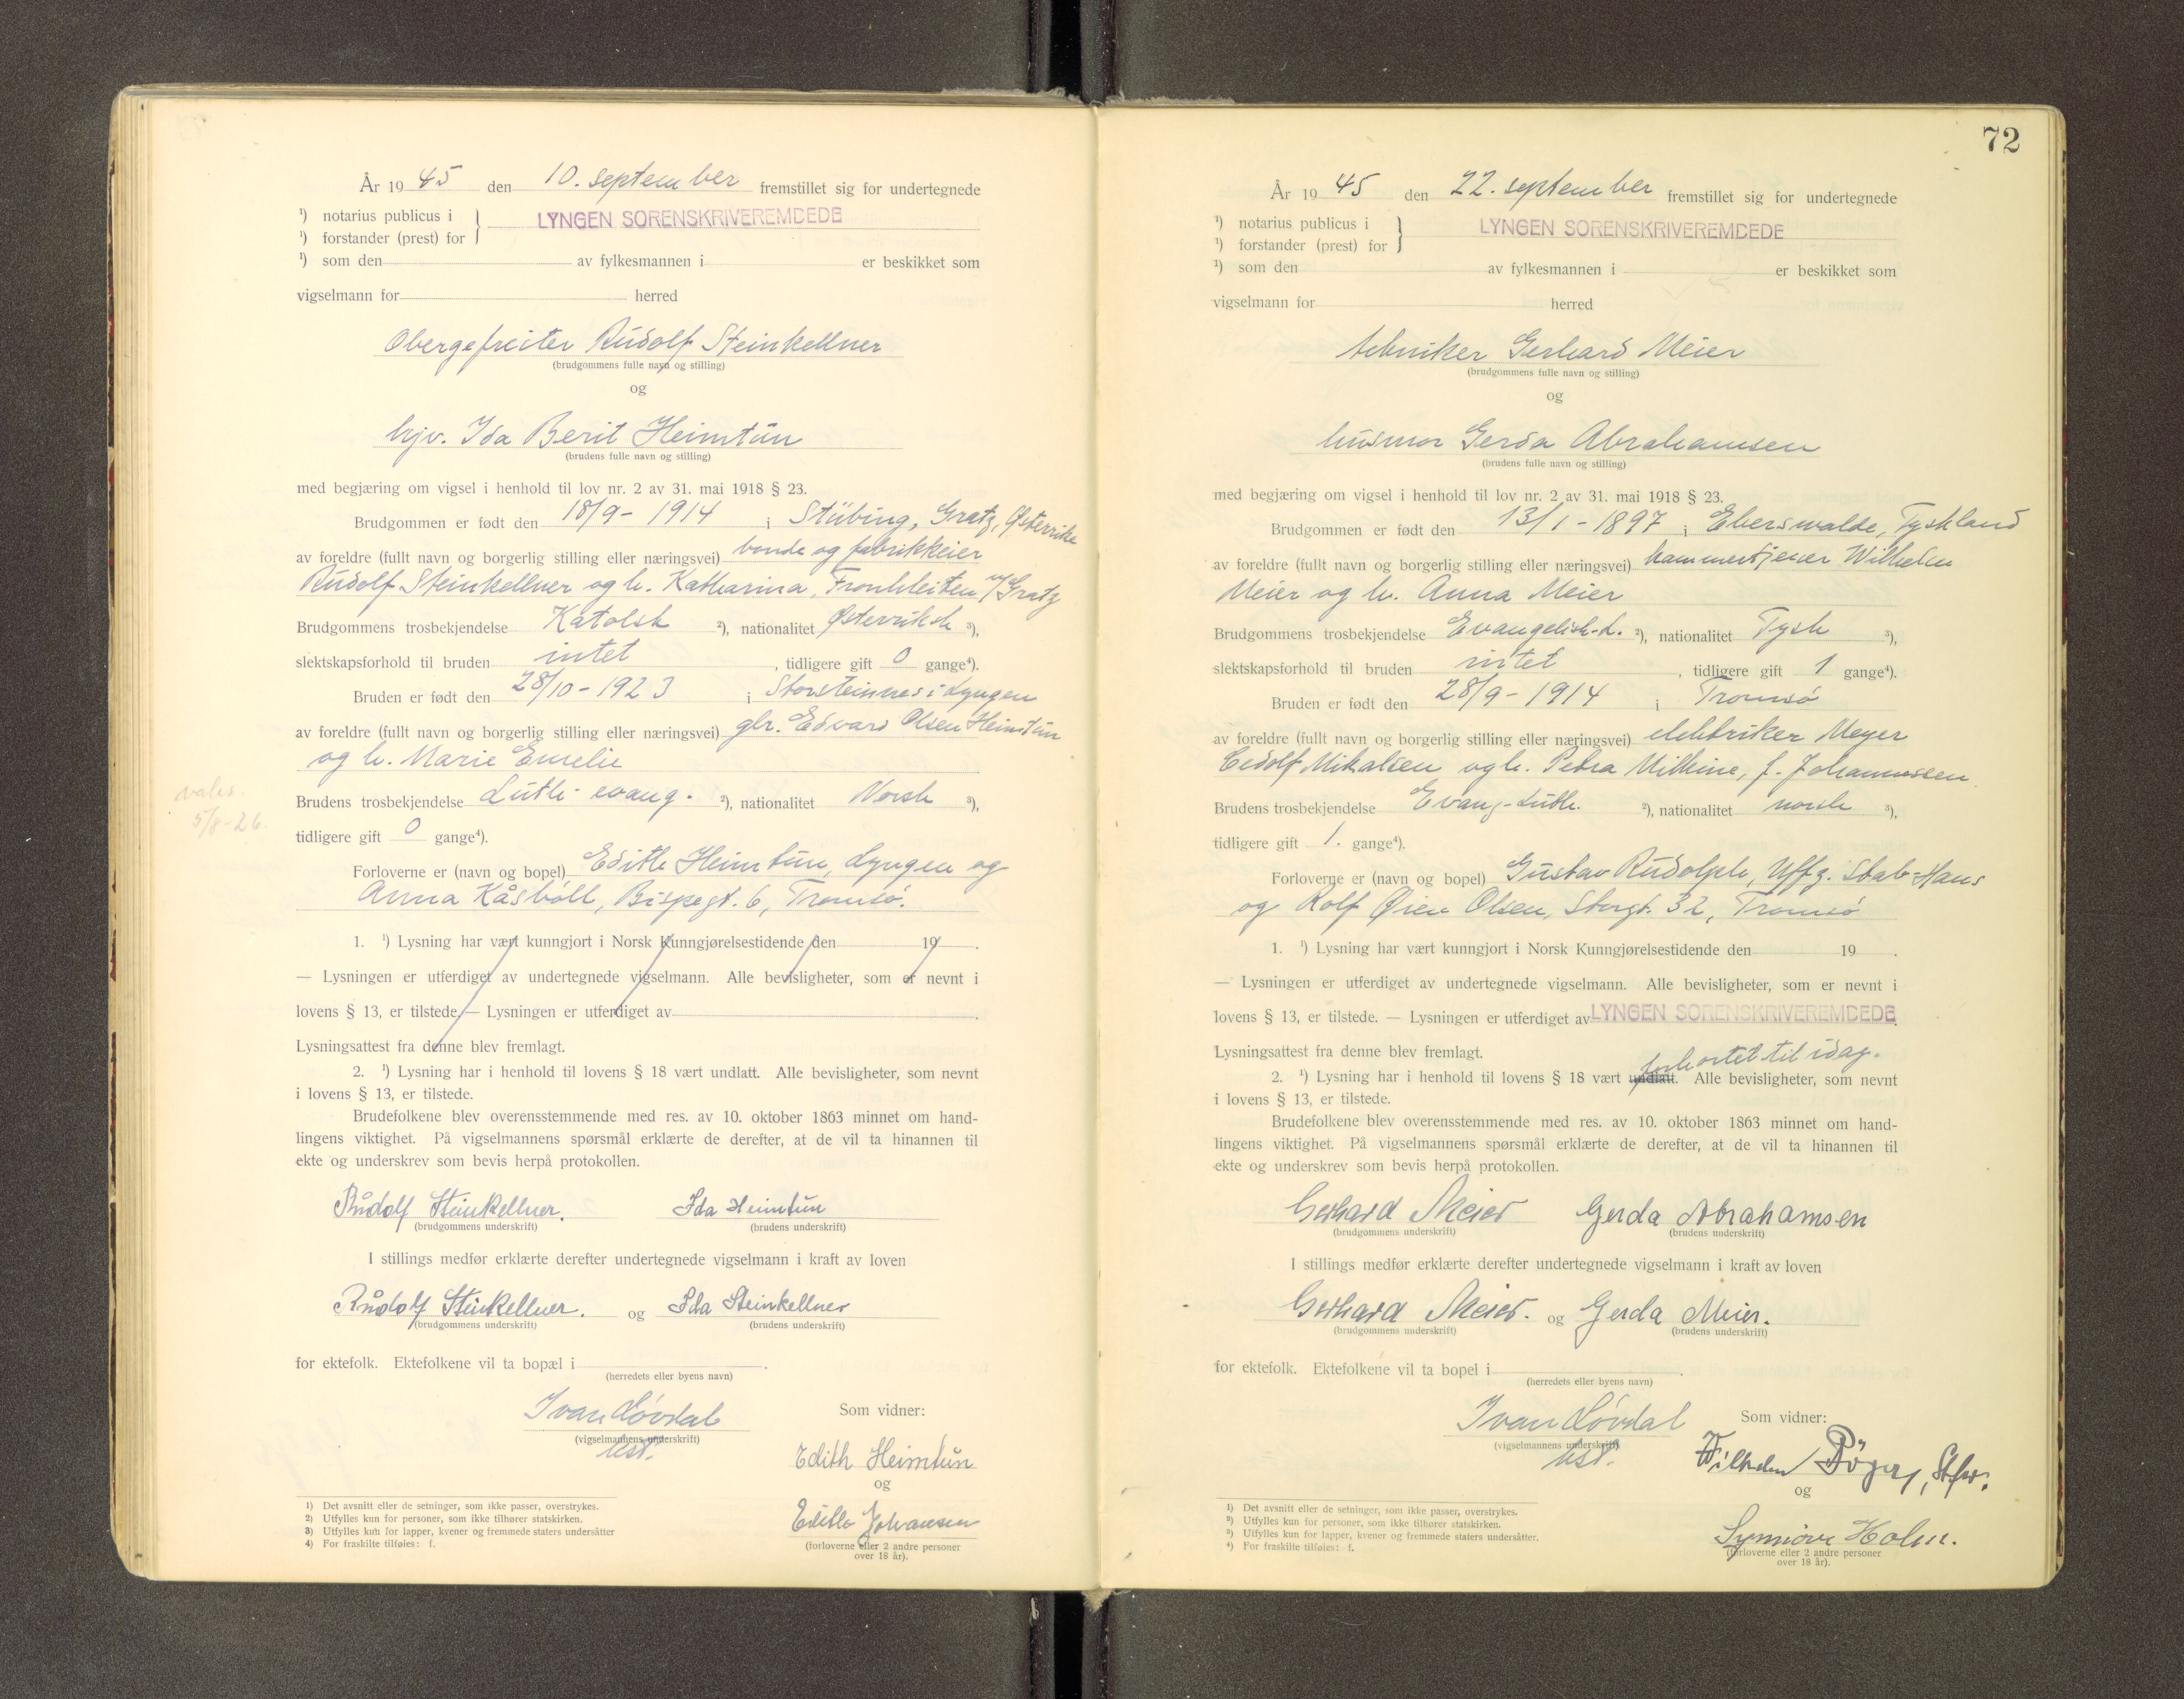 År 1945 den 10. september fremstillet sig for undertegnede
¹) notarius publicus i
¹) forstander (prest) for } LYNGEN SORENSKRIVEREMBEDE
¹) som den av fylkesmannen i er beskikket som
vigselmann for herred
Obergefreiter Rudolf Steinkellner
(brudgommens fulle navn og stilling)
og
hjv. Ida Berit Heimtun
(brudens fulle navn og stilling)
med begjæring om vigsel i henhold til lov nr. 2 av 31. mai 1918 § 23.
Brudgommen er født den 18/9 - 1914 i Stübing, Gratz, Østerrike
av foreldre (fullt navn og borgerlig stilling eller næringsvei) bonde og fabrikkeier
Rudolf Steinkellner og h. Katharina, Fronhleiten v/Gratz
Brudgommens trosbekjendelse Katolsk ²), nationalitet Østeriksk ³),
slektskapsforhold til bruden intet, tidligere gift 0 gange⁴).
Bruden er født den 28/10 - 1923 i Storsteinnes i Lyngen
av foreldre (fullt navn og borgerlig stilling eller næringsvei) gbr. Edvard Olsen Heimtun
og h. Marie Emelie
Brudens trosbekjendelse Luth-evang. ²), nationalitet Norsk ³),
tidligere gift 0 gange⁴).
5/8-26.
Forloverne er (navn og bopel) Edith Heimtun, Lyngen og
Anna Kåsbøll, Bispegt. 6, Tromsø.
1. ¹) Lysning har vært kunngjort i Norsk Kunngjørelsestidende den 19 .
— Lysningen er utferdiget av undertegnede vigselmann. Alle bevisligheter, som er nevnt i
lovens § 13, er tilstede. — Lysningen er utferdiget av .
Lysningsattest fra denne blev fremlagt.
2. ¹) Lysning har i henhold til lovens § 18 vært undlatt. Alle bevisligheter, som nevnt
i lovens § 13, er tilstede.
Brudefolkene blev overensstemmende med res. av 10. oktober 1863 minnet om hand-
lingens viktighet. På vigselmannens spørsmål erklærte de derefter, at de vil ta hinannen til
ekte og underskrev som bevis herpå protokollen.
Rudolf Steinkellner. Ida Heimtun
(brudgommens underskrift) (brudens underskrift)
I stillings medfør erklærte derefter undertegnede vigselmann i kraft av loven
Rudolf Steinkellner. og Ida Steinkellner
(brudgommens underskrift) (brudens underskrift)
for ektefolk. Ektefolkene vil ta bopæl i .
(herredets eller byens navn)
Ivan Løvdal Som vidner:
(vigselmannens underskrift)
Edith Heimtun
og
Edith Johansen
(forloverne eller 2 andre personer
over 18 år).
1) Det avsnitt eller de setninger, som ikke passer, overstrykes.
2) Utfylles kun for personer, som ikke tilhører statskirken.
3) Utfylles kun for lapper, kvener og fremmede staters undersåtter
4) For fraskilte tilføies: f.
72
År 1945 den 22. september fremstillet sig for undertegnede
¹) notarius publicus i
¹) forstander (prest) for } LYNGEN SORENSKRIVEREMBEDE
¹) som den av fylkesmannen i er beskikket som
vigselmann for herred
tekniker Gerhard Meier
(brudgommens fulle navn og stilling)
og
husmor Gerda Abrahamsen
(brudens fulle navn og stilling)
med begjæring om vigsel i henhold til lov nr. 2 av 31. mai 1918 § 23.
Brudgommen er født den 13/1 - 1897 i Eberswalde, Tyskland
av foreldre (fullt navn og borgerlig stilling eller næringsvei) kammertjener Wilhelm
Meier og h. Anna Meier
Brudgommens trosbekjendelse Evangelisk-L. ²), nationalitet Tysk ³),
slektskapsforhold til bruden intet, tidligere gift 1 gange⁴).
Bruden er født den 28/9 - 1914 i Tromsø
av foreldre (fullt navn og borgerlig stilling eller næringsvei) elektriker Meyer
Mikalsen og h. Petra Milkine, f. Johannessen
Brudens trosbekjendelse Evang-Luth. ²), nationalitet norsk ³),
tidligere gift 1. gange⁴).
Forloverne er (navn og bopel) Gustav Rudolph, Uffz. Stab-Haus
og Rolf Øien Olsen, Storgt. 32, Tromsø
1. ¹) Lysning har vært kunngjort i Norsk Kunngjørelsestidende den 19 .
— Lysningen er utferdiget av undertegnede vigselmann. Alle bevisligheter, som er nevnt i
lovens § 13, er tilstede. — Lysningen er utferdiget av LYNGEN SORENSKRIVEREMBEDE
Lysningsattest fra denne blev fremlagt.
forkortet til idag.
2. ¹) Lysning har i henhold til lovens § 18 vært undlatt. Alle bevisligheter, som nevnt
i lovens § 13, er tilstede.
Brudefolkene blev overensstemmende med res. av 10. oktober 1863 minnet om hand-
lingens viktighet. På vigselmannens spørsmål erklærte de derefter, at de vil ta hinannen til
ekte og underskrev som bevis herpå protokollen.
Gerhard Meier Gerda Abrahamsen
(brudgommens underskrift) (brudens underskrift)
I stillings medfør erklærte derefter undertegnede vigselmann i kraft av loven
Gerhard Meier. og Gerda Meier.
(brudgommens underskrift) (brudens underskrift)
for ektefolk. Ektefolkene vil ta bopel i .
(herredets eller byens navn)
Ivan Løvdal Som vidner:
(vigselmannens underskrift)
Wilhelm
og
Synnöve Holm.
(forloverne eller 2 andre personer
over 18 år).
¹) Det avsnitt eller de setninger, som ikke passer, overstrykes.
²) Utfylles kun for personer, som ikke tilhører statskirken.
³) Utfylles kun for lapper, kvener og fremmede staters undersåtter.
⁴) For fraskilte tilføies: f.